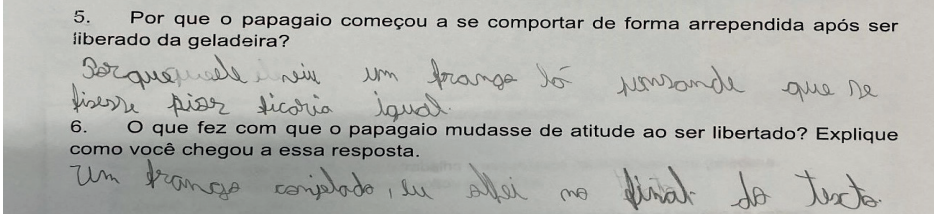 5. Por que o papagaio começou a se comportar de forma arrependida após ser
liberado da geladeira?
Porque ele viu um frango lá pensando que se
fisesse pior ficaria igual.
6. O que fez com que o papagaio mudasse de atitude ao ser libertado? Explique
como você chegou a essa resposta.
Um frango conjelado, eu olhei no final do texto.